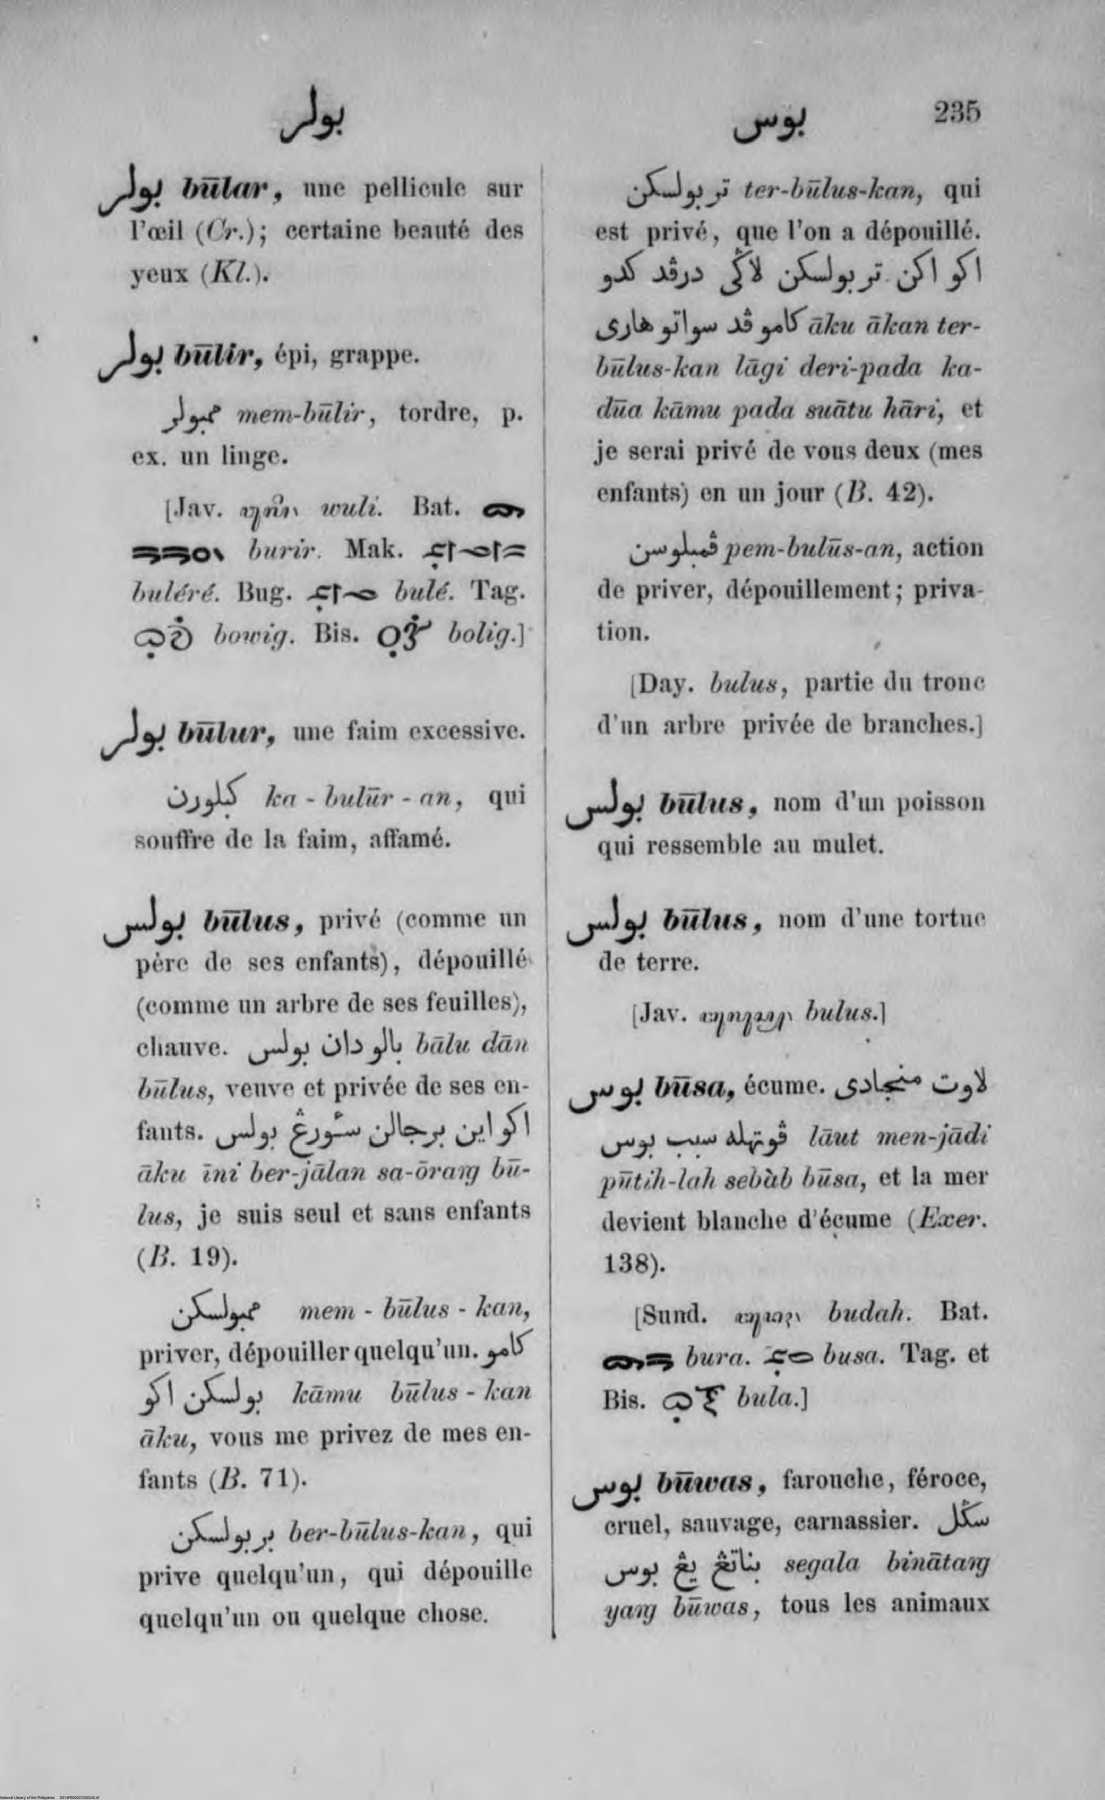 بولر
بوس 235
بولر būlar, une pellicule sur
l'œil (Cr.); certaine beauté des
yeux (Kl.).
بولر būlir, épi, grappe.
ممبولر mem-būlir, tordre, p.
ex. un linge.
[Jav. wuli. Bat.
burir. Mak.
buléré. Bug. bulé. Tag.
bowig. Bis. bolig.]
بولر būlur, une faim excessive.
کبلورن ka - bulūr - an, qui
souffre de la faim, affamé.
بولس būlus, privé (comme un
père de ses enfants), dépouillé
(comme un arbre de ses feuilles),
chauve. بالو دان بولس bālu dān
būlus, veuve et privée de ses en-
fants. اکو این برجالن سئورڠ بولس
āku īni ber-jālan sa-ōrang bū-
lus, je suis seul et sans enfants
(B. 19).
ممبولسکن mem - būlus - kan,
priver, dépouiller quelqu'un. کامو
بولسکن اکو kāmu būlus - kan
āku, vous me privez de mes en-
fants (B. 71).
بربولسکن ber-būlus-kan, qui
prive quelqu'un, qui dépouille
quelqu'un ou quelque chose.
تربولسکن ter-būlus-kan, qui
est privé, que l'on a dépouillé.
اکو اکن تربولسکن لاڬی درڤد کدو
کامو ڤد سواتو هاری āku ākan ter-
būlus-kan lāgi deri-pada ka-
dūa kāmu pada suātu hāri, et
je serai privé de vous deux (mes
enfants) en un jour (B. 42).
ڤمبلوسن pem-bulūs-an, action
de priver, dépouillement; priva-
tion.
[Day. bulus, partie du tronc
d'un arbre privée de branches.]
بولس būlus, nom d'un poisson
qui ressemble au mulet.
بولس būlus, nom d'une tortue
de terre.
[Jav. bulus.]
بوس būsa, écume. لاوت منجادی
ڤوتهله سبب بوس lāut men-jādi
pūtih-lah sebàb būsa, et la mer
devient blanche d'écume (Exer.
138).
[Sund. budah. Bat.
bura. busa. Tag. et
Bis. bula.]
بوس būwas, farouche, féroce,
cruel, sauvage, carnassier. سڬل
بناتڠ يڠ بوس segala binātang
yang būwas, tous les animaux